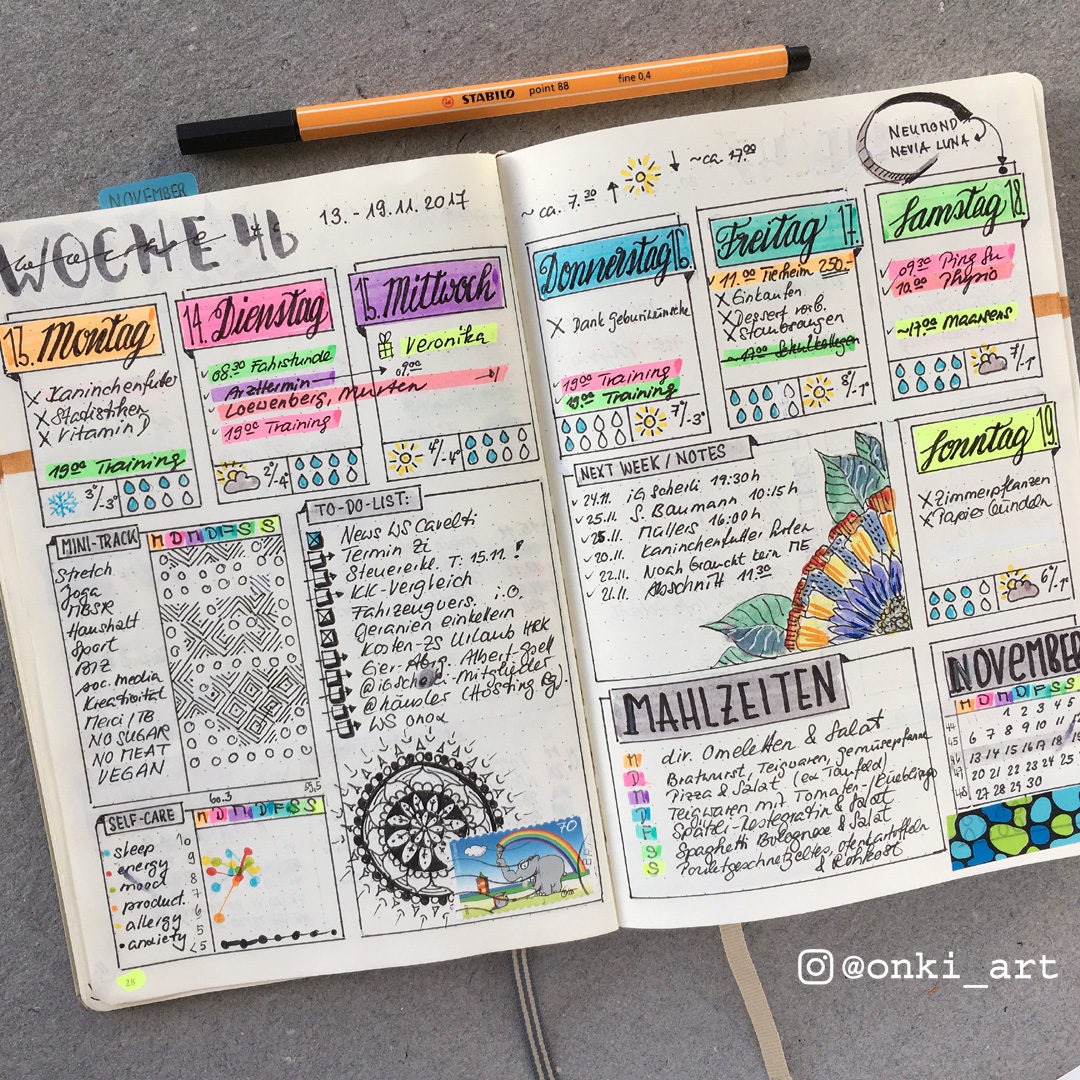 STABILO point 88 fine 0,4
NOVEMBER
WOCHE 46
13. - 19.11. 2017
13. Montag
X Kaninchenfutter
X Statistiken
X Vitamin D
19:00 Training
3°/-3°
14. Dienstag
08:30 Fahrstunde
Arzttermin
Loewenberg, Murten
19:00 Training
2°/-4°
15. Mittwoch
Veronika
09:00
4°/-4°
MINI-TRACK
M D M D F S S
Stretch
Joga
MBSR
Haushalt
Sport
soc. media
Kreativität
Merci / TB
NO SUGAR
NO MEAT
VEGAN
60.3
59,5
TO-DO-LIST:
News WS Cavelti
Termin Zi
Steuererkl. T: 15.11. !
KK-Vergleich
Fahrzeugvers. i.O.
Geranien einkellern
Kosten-ZS Urlaub HRK
@iGscherli-Mitglieder
@häusler (Hosting Bg.)
WS onox
SELF-CARE
M D M D F S S
sleep
energy
mood
product.
allergy
anxiety
10
9
8
7
6
5
<5
70
28
~ ca. 7.30 ↑ ↓ ~ca. 17.00
NEUMOND
NEVIA LUNA
Donnerstag 16
X Dank Geburiwünsche
19:00 Training
19:00 Training
7°/-3°
Freitag 17.
11.00 Tierheim 250.-
X Einkaufen
X Dessert vorb.
X Staubsaugen
8°/-1°
Samstag 18.
09:30 Ping Su
10.00 Physio
~17.00 Maarsens
7/-1°
NEXT WEEK / NOTES
24.11. iG Scherli 19:30h
25.11. S. Baumann 10:15h
25.11. Müllers 16:00h
20.11. Kaninchenfutter
22.11. Noah braucht kein ME
21.11. Abschnitt 11.30
Sonntag 19.
X Zimmerpflanzen
X Papier bündeln
6°/-1°
MAHLZEITEN
M div. Omeletten & Salat
D Bratwurst, Teigwaren, Gemüsepfanne
M Pizza & Salat (ex Täufeld)
D Teigwaren mit Tomaten-/Rüeblisugo
F Spätzli-Restegratin & Salat
S Spaghetti Bolognese & Salat
S Pouletgeschnetzeltes, Ofenkartoffeln
& Rohkost
NOVEMBER
M D M D F S S
44 1 2 3 4 5
45 6 7 8 9 10 11
46 13 14 15 16 17 18 19
47 20 21 22 23 24 25
48 27 28 29 30
@onki_art